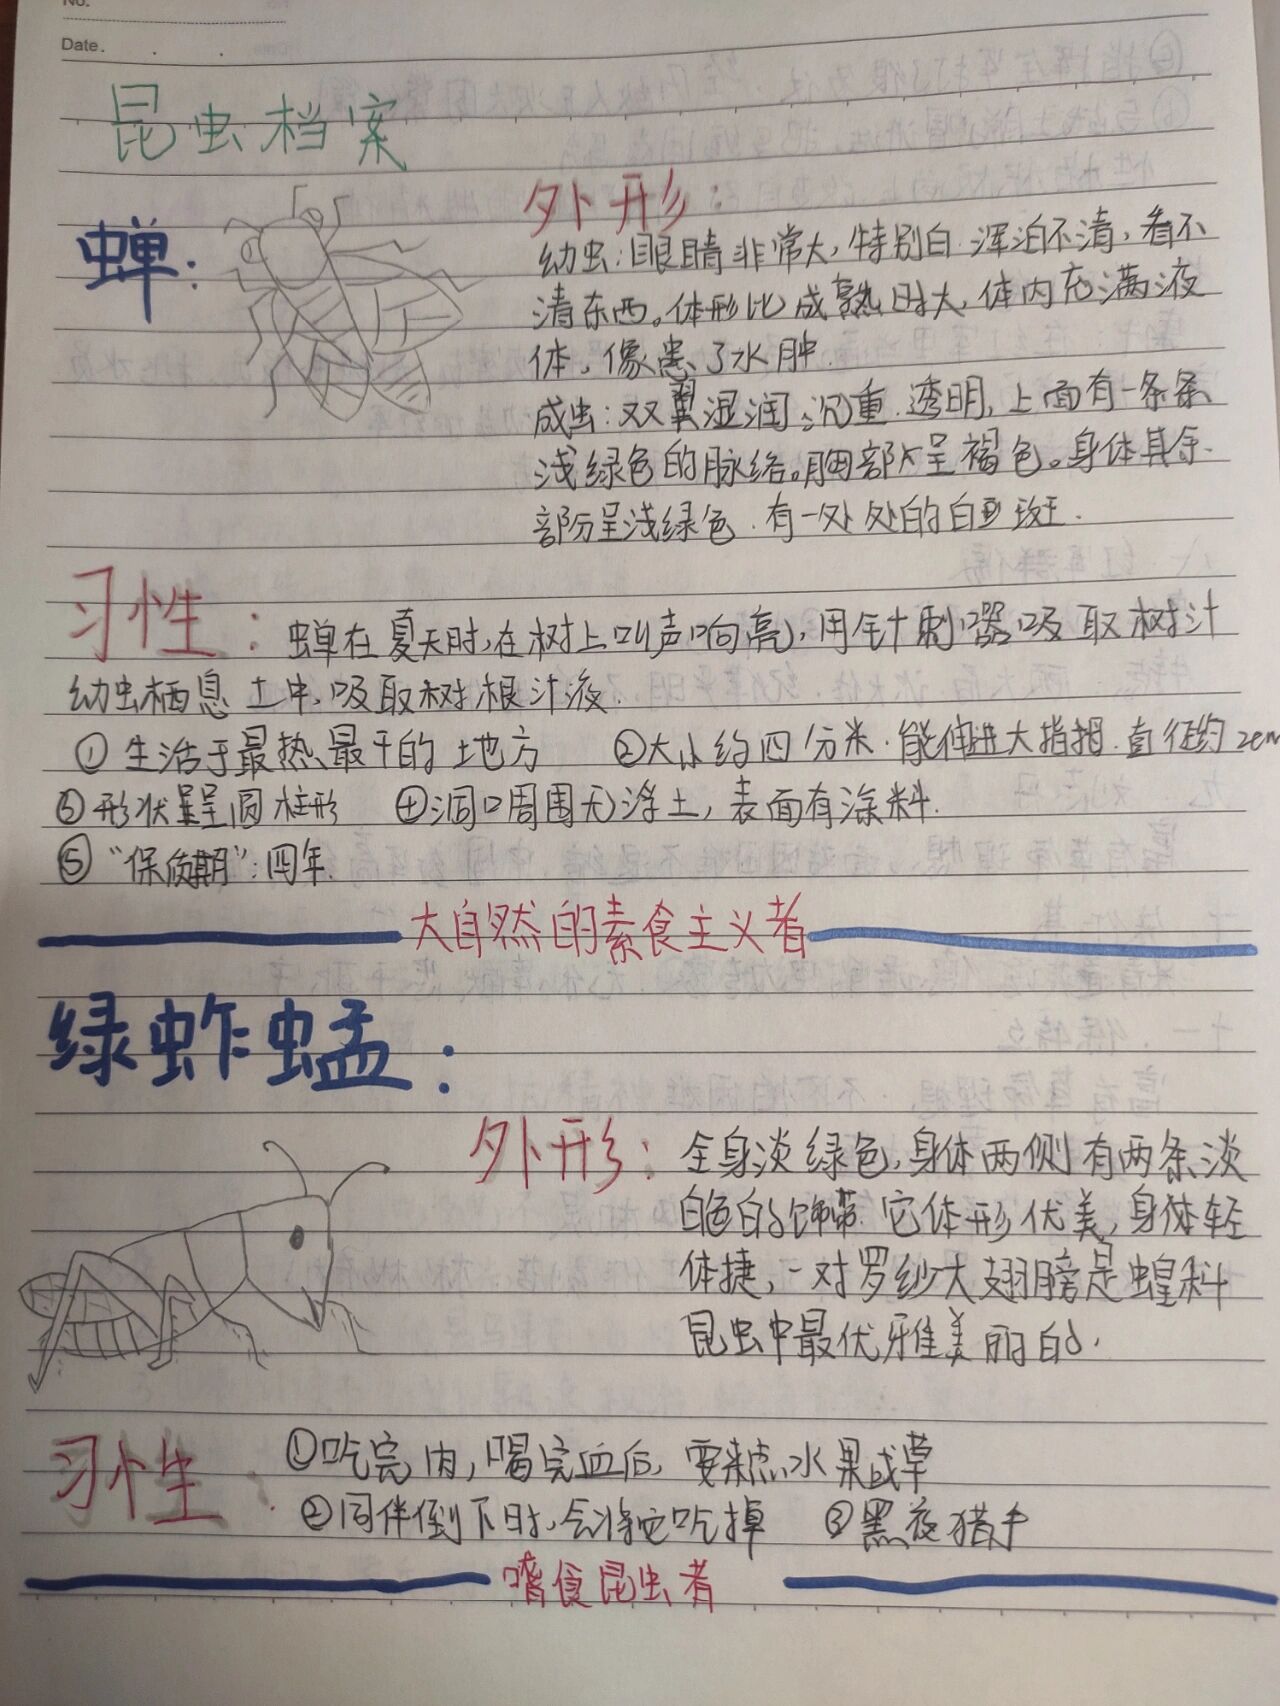 No.
Date.
昆虫档案
蝉:
外形:
幼虫:眼睛非常大,特别白.浑浊不清,看不
清东西。体形比成熟时大,体内充满液
体,像患了水肿.
成虫:双翼湿润、沉重.透明,上面有一条条
浅绿色的脉络。胸部呈褐色。身体其余
部分呈浅绿色.有一处处的白斑.
习性:蝉在夏天时,在树上叫声响亮,用针刺嘴吸取树汁
幼虫栖息土中,吸取树根汁液.
①生活于最热最干的地方 ②大小约四分米.能伸进大拇指.直径约2cm
③形状呈圆柱形 ④洞口周围无浮土,表面有涂料.
⑤“保质期”:四年.
大自然的素食主义者
绿蚱蜢:
外形:全身淡绿色,身体两侧有两条淡
白色的饰带.它体形优美,身体轻
体捷,一对罗纱大翅膀是蝗科
昆虫中最优雅美丽的.
习性:①吃完肉,喝完血后,要来点水果或草
②同伴倒下时,会将它吃掉 ③黑夜猎手
嗜食昆虫者